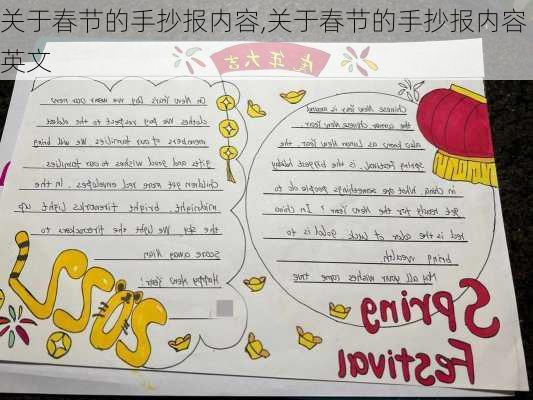 关于春节的手抄报内容,关于春节的手抄报内容
英文
虎年大吉
Chinese New Year is around
the corner Chinese New Year.
also known as Lunar New Year or the
Spring Festival, is the biggest holiday
in China What are somethings people do to
get ready for the New Year? In China
red is the color of luck gold is to
bring wealth
May all your wishes come true
On New Year's Day We wear our new
clothes We pay the respect to the elder
members of our families We will bring
gifts and good wishes to our families
Children get more red envelopes. In the
midnight, bright fireworks light up
the sky We light the firecrackers to
Scare away Nian
Happy New Year!
Spring
Festival
2022